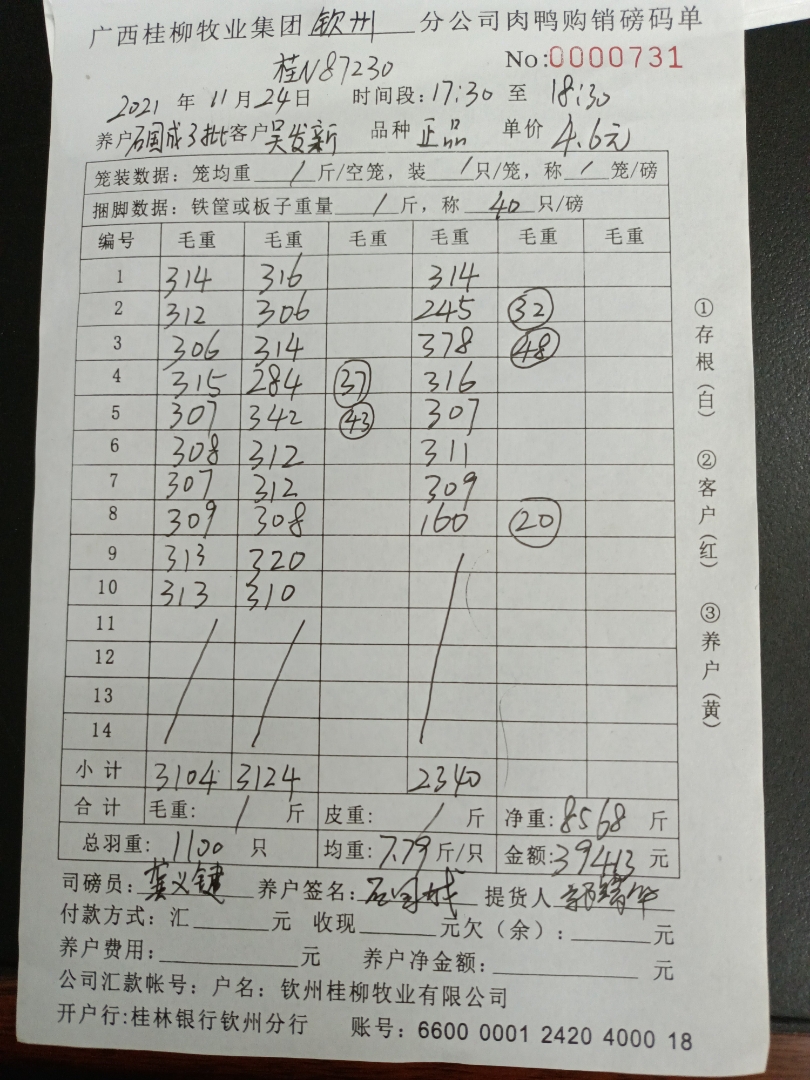 广西桂柳牧业集团 钦州 分公司肉鸭购销磅码单
桂N87230 No:0000731
2021 年 11 月 24 日 时间段: 17:30 至 18:30
养户 石国成3批 客户 吴发新 品种 正品 单价 4.6元
笼装数据: 笼均重 / 斤/空笼, 装 / 只/笼, 称 / 笼/磅
捆脚数据: 铁筐或板子重量 / 斤, 称 40 只/磅
编号 毛重 毛重 毛重 毛重 毛重 毛重
1 314 316 314
2 312 306 245 32
3 306 314 378 48
4 315 284 37 316
5 307 342 43 307
6 308 312 311
7 307 312 309
8 309 308 160 20
9 313 320
10 313 310
11
12
13
14
小计 3104 3124 2340
合计 毛重: / 斤 皮重: / 斤 净重: 8568 斤
总羽重: 1100 只 均重: 7.79 斤/只 金额: 39413 元
司磅员: 龚义键 养户签名: 石国成 提货人
付款方式: 汇 元 收现 元 欠(余): 元
养户费用: 元 养户净金额: 元
公司汇款帐号: 户名: 钦州桂柳牧业有限公司
开户行:桂林银行钦州分行 账号: 6600 0001 2420 4000 18
①存根(白) ②客户(红) ③养户(黄)